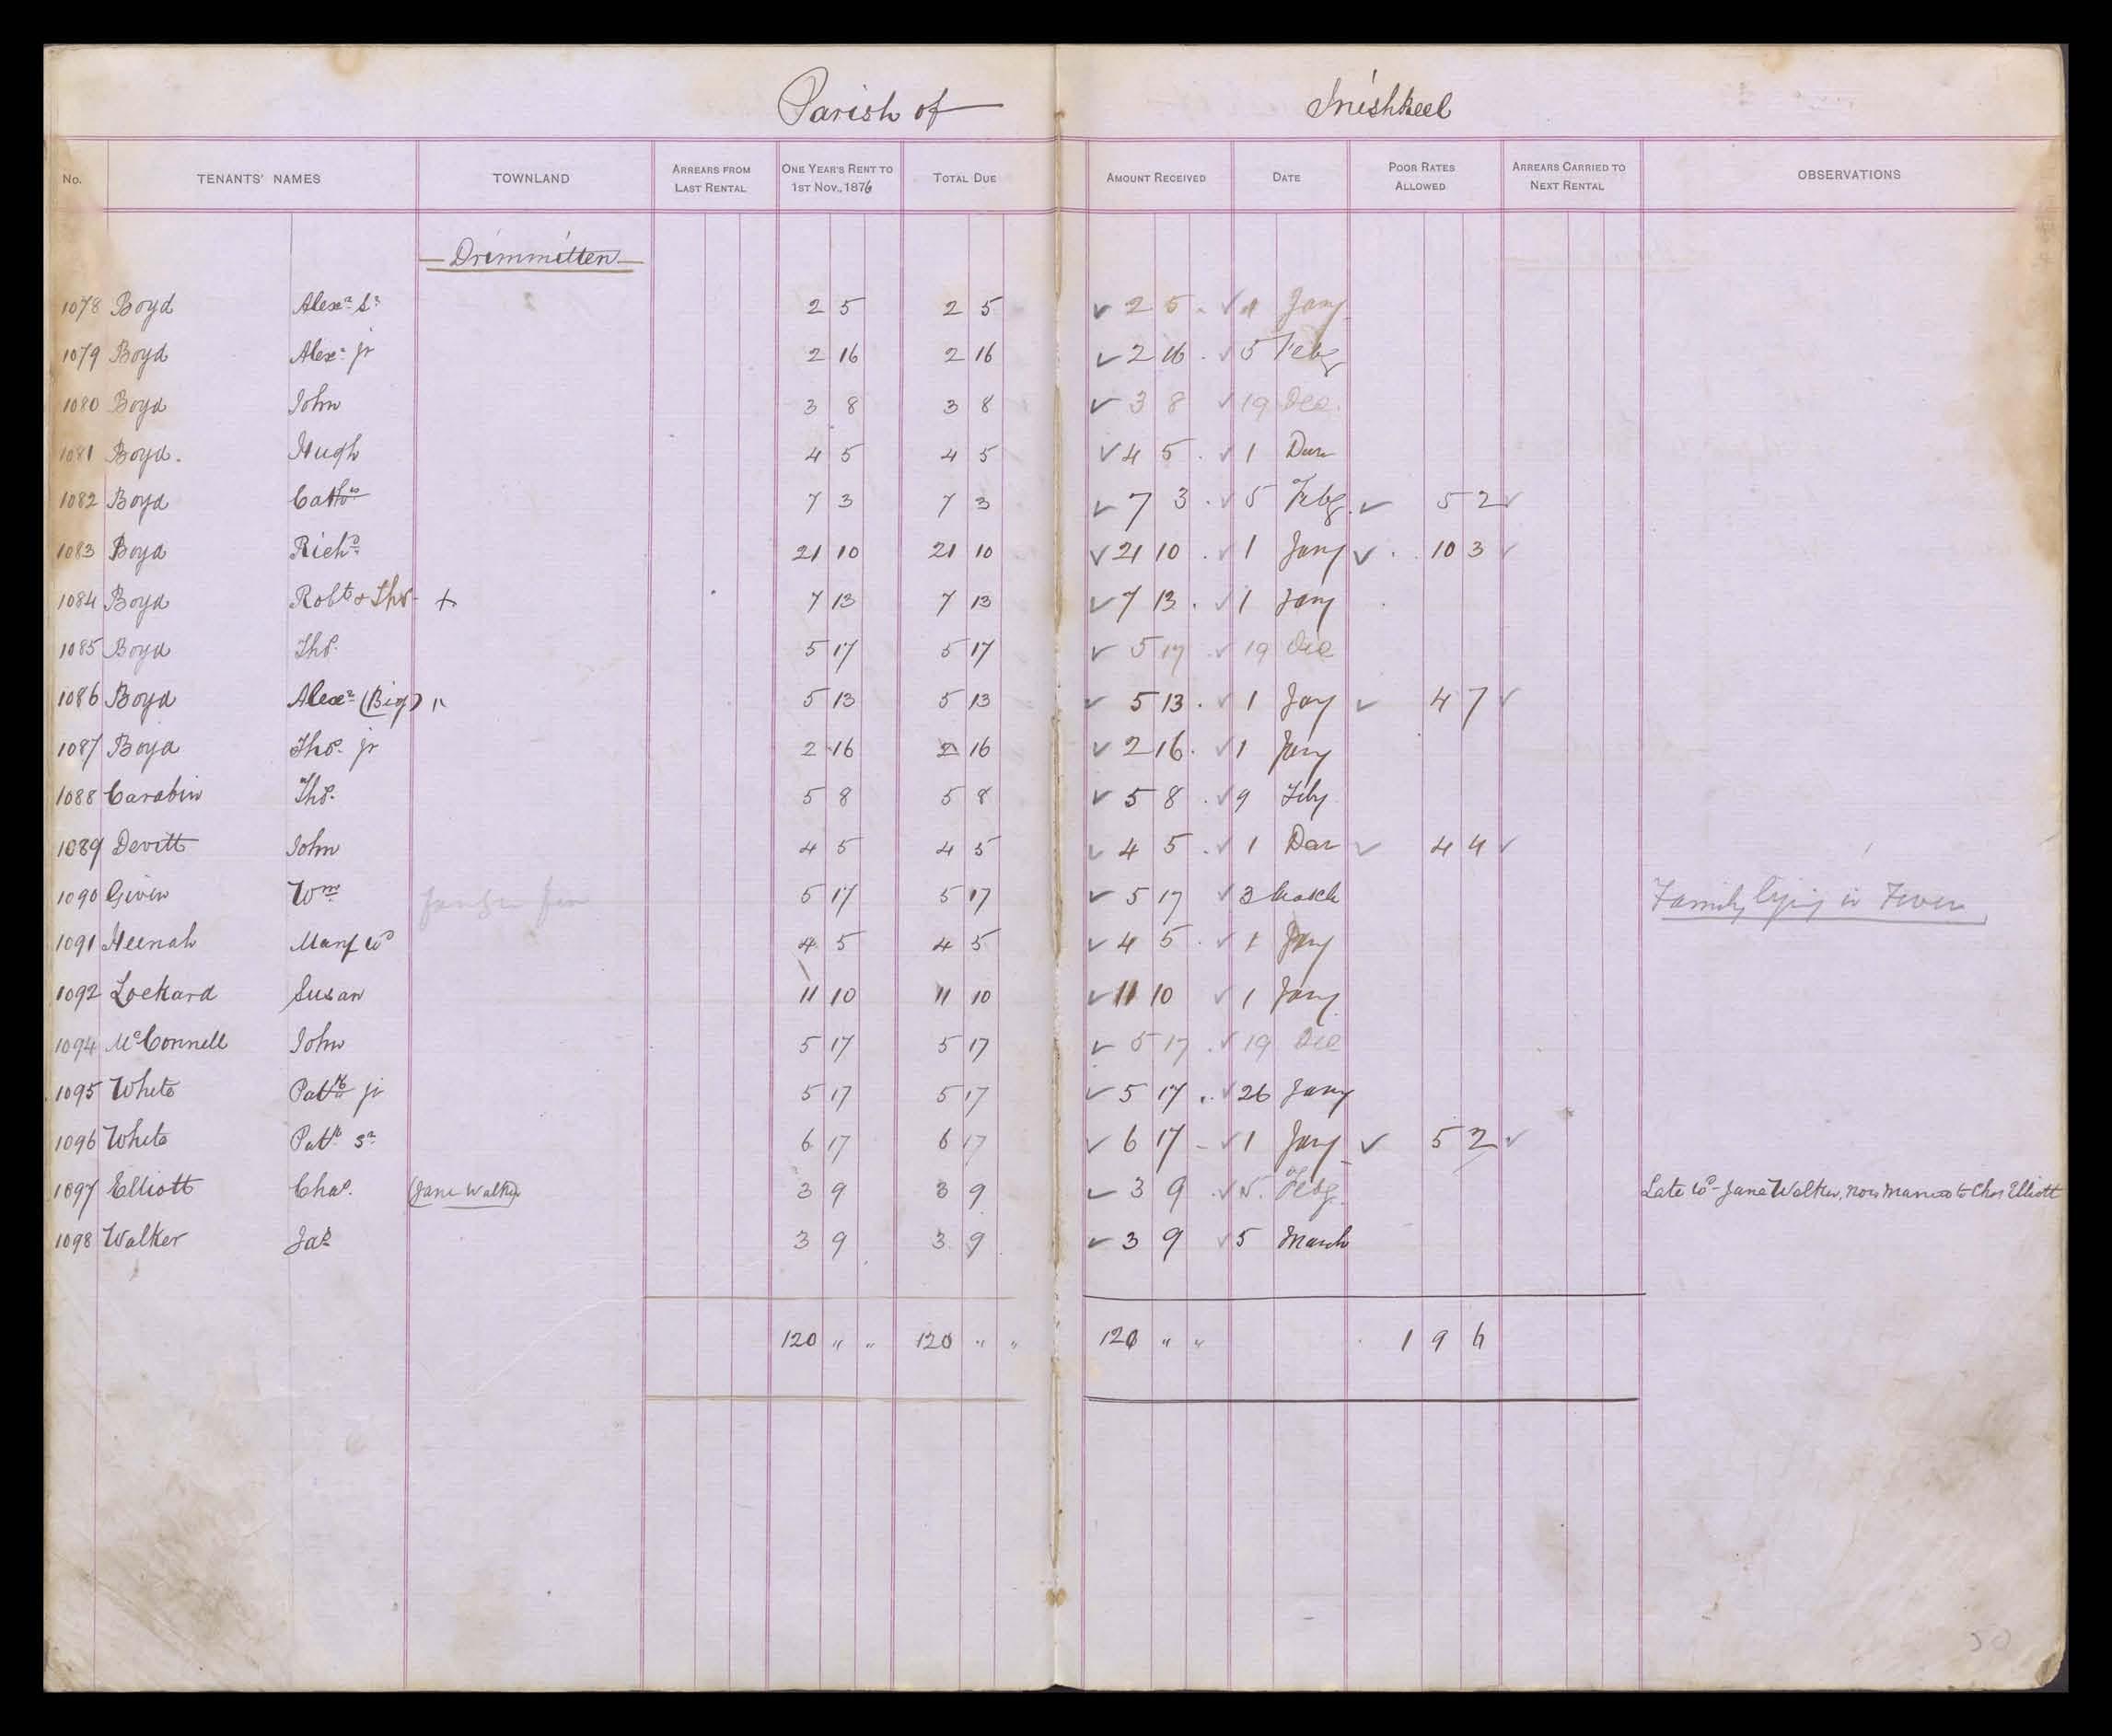 Parish of Inishkeel
No. TENANTS' NAMES TOWNLAND ARREARS FROM LAST RENTAL ONE YEAR'S RENT TO 1ST NOV., 1876 TOTAL DUE AMOUNT RECEIVED DATE POOR RATES ALLOWED ARREARS CARRIED TO NEXT RENTAL OBSERVATIONS
Drimmitten
1078 Boyd Alexr Sr 2 5 2 5 ✓ 2 5 . ✓ 1 Jany
1079 Boyd Alexr jr 2 16 2 16 ✓ 2 16 . ✓ 5 Feby
1080 Boyd John 3 8 3 8 ✓ 3 8 ✓ 19 Dec.
1081 Boyd. Hugh 4 5 4 5 ✓ 4 5 . ✓ 1
1082 Boyd 7 3 7 3 ✓ 7 3 . ✓ 5 Feby. ✓ 5 2 ✓
1083 Boyd Richd 21 10 21 10 ✓ 21 10 . ✓ 1 Jany ✓ 10 3 ✓
1084 Boyd Robt & Thos + 7 13 7 13 ✓ 7 13 . ✓ 1 Jany
1085 Boyd Thos. 5 17 5 17 ✓ 5 17 ✓ 19 Dec
1086 Boyd Alexr (Big) " 5 13 5 13 ✓ 5 13 . ✓ 1 Jay ✓ 4 7 ✓
1087 Boyd Thos. jr 2 16 2 16 ✓ 2 16 . ✓ 1 Jany
1088 Carabin Thos. 5 8 5 8 ✓ 5 8 . ✓ 9 Feby
1089 Devitt John 4 5 4 5 ✓ 4 5 . ✓ 1 ✓ 4 4 ✓
1090 Given Wm 5 17 5 17 ✓ 5 17 ✓ 3 March Family lying in Fever
1091 Heenah Mary wd 4 5 4 5 ✓ 4 5 . ✓ 1 Jany
1092 Lockard Susan 11 10 11 10 ✓ 11 10 ✓ 1 Jany
1094 McConnell John 5 17 5 17 ✓ 5 17 . ✓ 19 Dec
1095 White Patk jr 5 17 5 17 ✓ 5 17 . ✓ 26 Jany
1096 White Patk Sr 6 17 6 17 ✓ 6 17 - ✓ 1 Jany ✓ 5 2 ✓
1097 Elliott Chas. (Jane Walker) 3 9 3 9 ✓ 3 9 . ✓ 5. Feby. Late wd Jane Walker, now married to Chas Elliott
1098 Walker Jas 3 9 3 9 ✓ 3 9 ✓ 5 March
120 " " 120 " " 120 " " 1 9 6
50